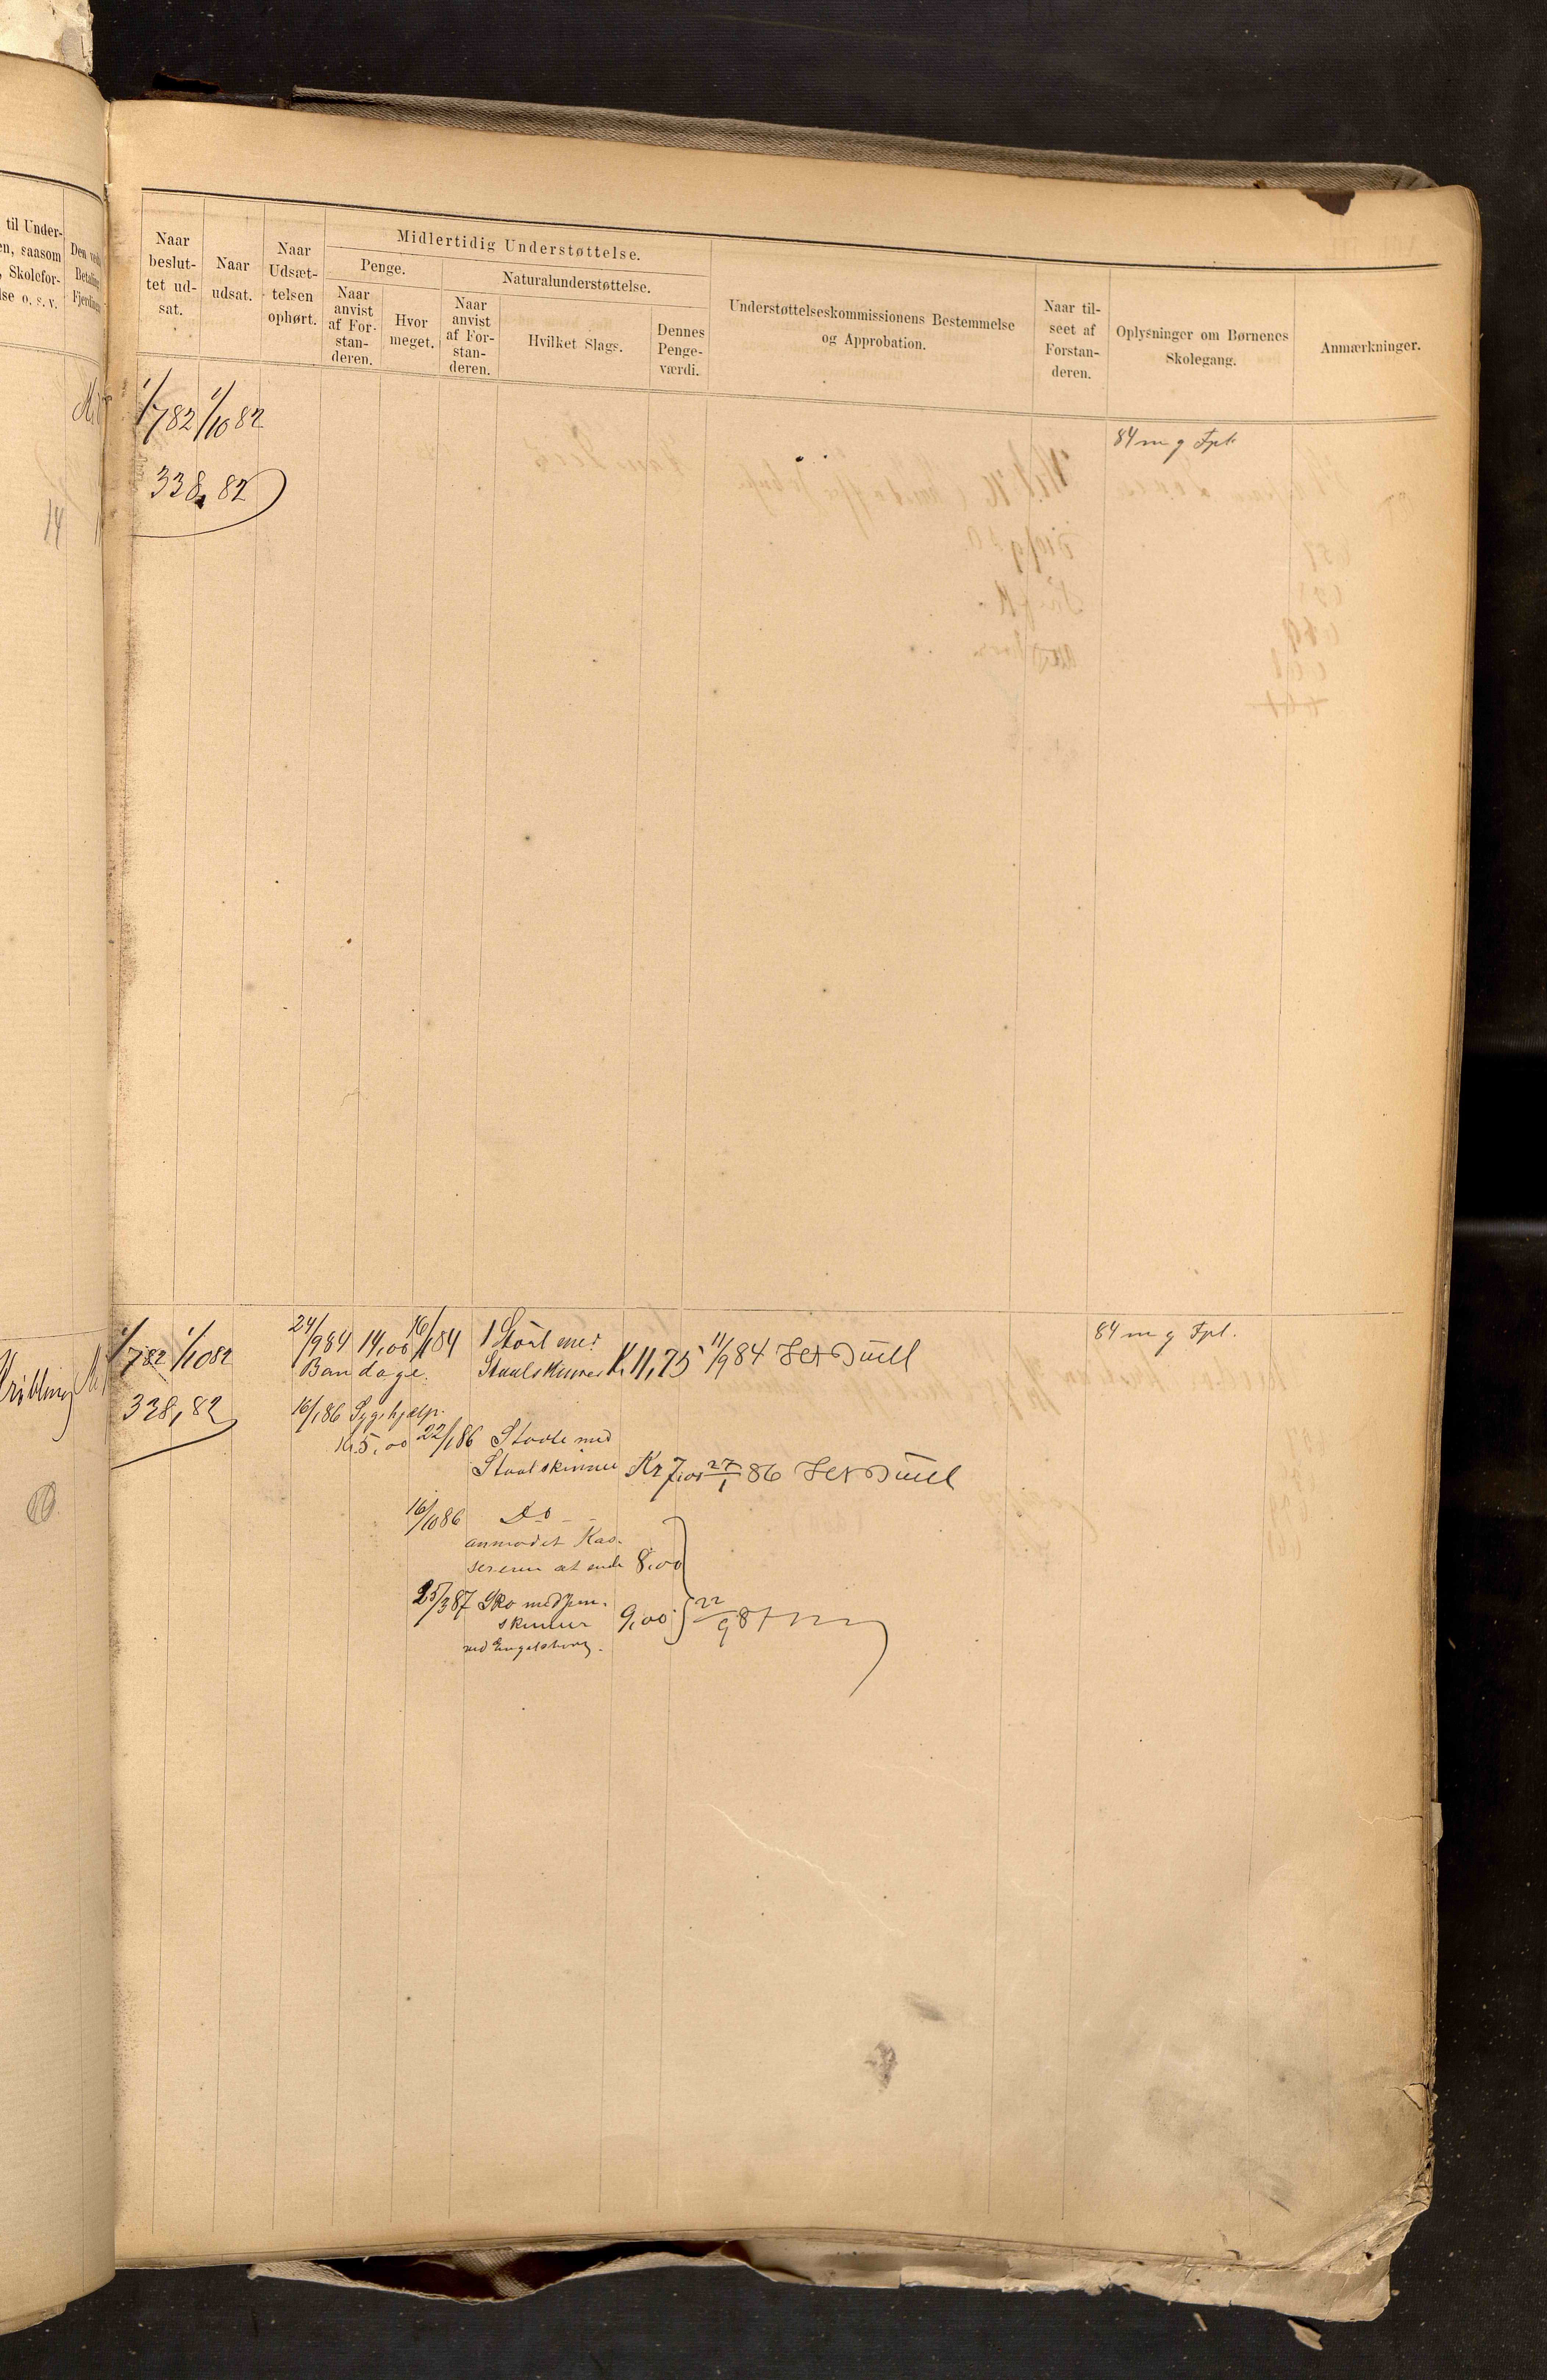 til Under-
en, saasom
, Skolefor-
lse o. s. v.
Den
Betaling
Fjerding
Naar
beslut-
tet ud-
sat.
Naar
udsat.
Naar
Udsæt-
telsen
ophørt.
Midlertidig Understøttelse.
Penge.
Naar
anvist
af For-
stan-
deren.
Hvor
meget.
Naturalunderstøttelse.
Naar
anvist
af For-
stan-
deren.
Hvilket Slags.
Dennes
Penge-
værdi.
Understøttelseskommissionens Bestemmelse
og Approbation.
Naar til-
seet af
Forstan-
deren.
Oplysninger om Børnenes
Skolegang.
Anmærkninger.
1/7 82 1/10 82
84 m g Fpl.
338, 82
14
1/7 82 1/10 82
338, 82
24/9 84 14,00
Bandage.
16/1 86 Sygehjælp.
Kr 5,00
16/1 84 1 Støvl med
Staalskinner Kr 11,75 11/9 84
22/1 86 Støvle med
Staalskinner Kr 7,00 27/1 86
16/10 86 Do
anmodet Kas-
sereren at sende 8,00
25/3 87 Sko med Jern-
skinner 9,00 22/9 87
ved
84 m g Fpl.